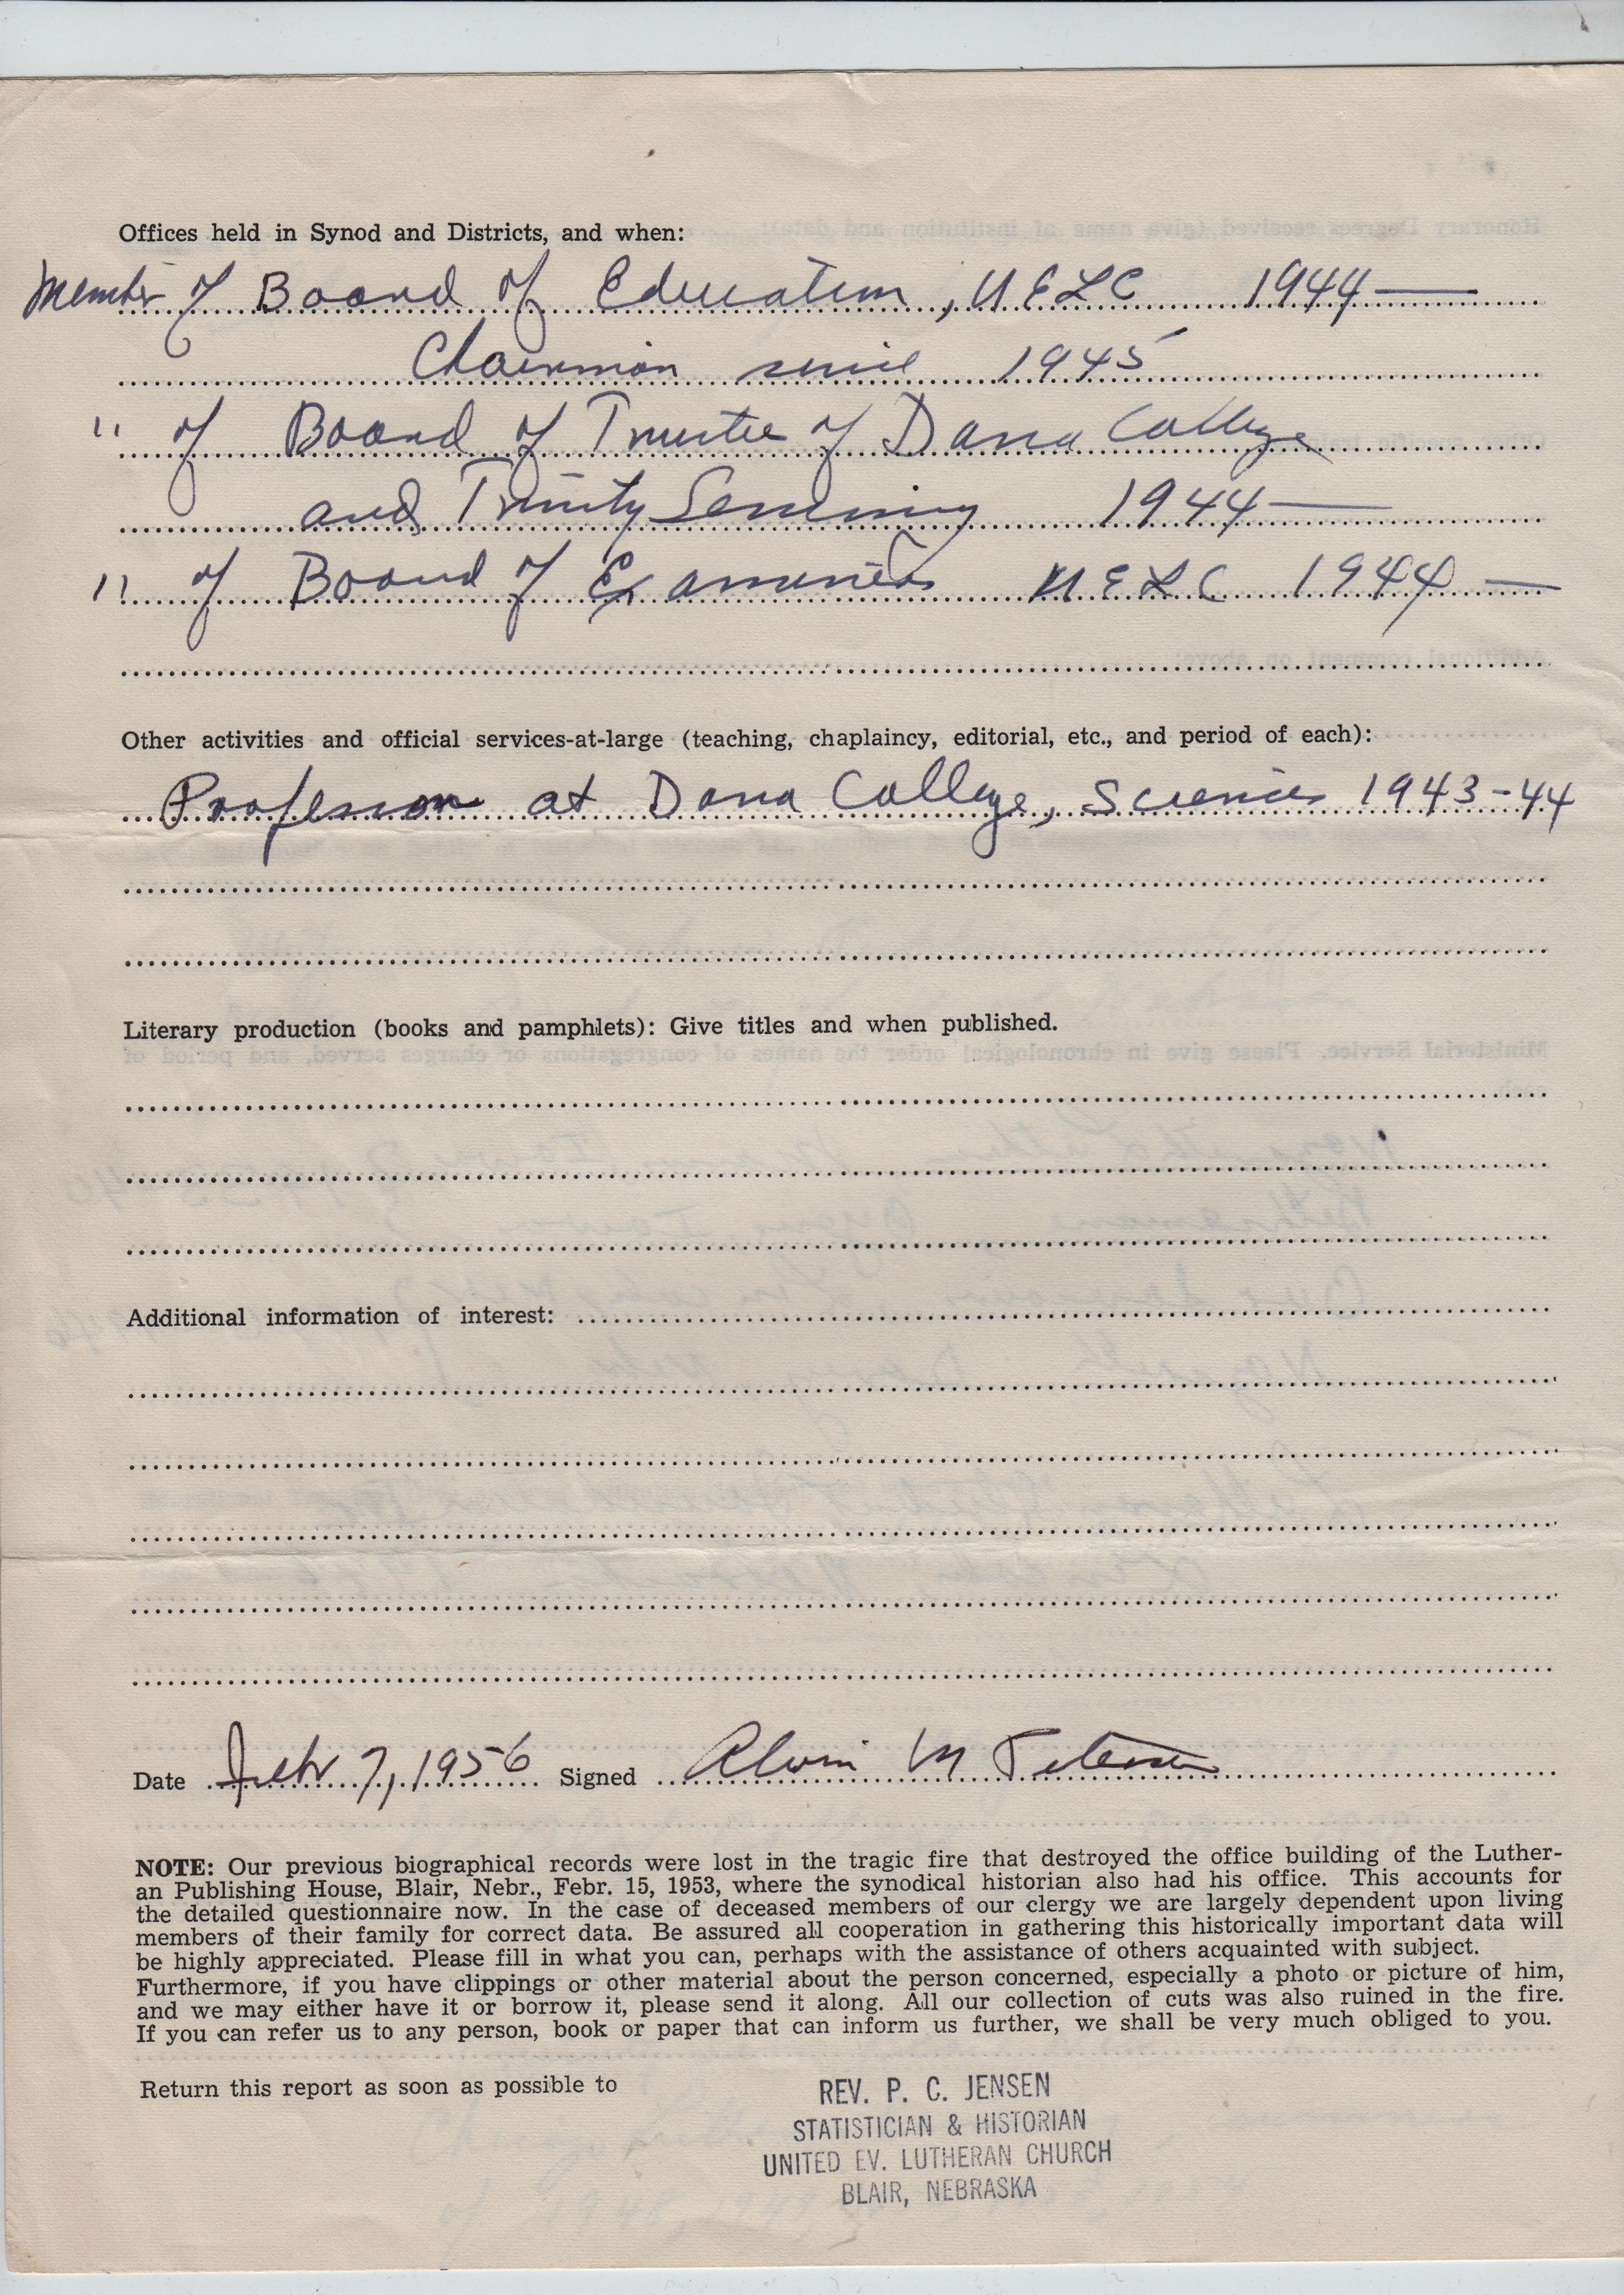 Offices held in Synod and Districts, and when:
Member of Board of Education, UELC 1944—
Chairman since 1945
" of Board of Trustee of Dana College
and Trinity Seminary 1944—
" of Board of Examiners UELC 1944—
Other activities and official services-at-large (teaching, chaplaincy, editorial, etc., and period of each):
Professor at Dana College, Sciences 1943-44
Literary production (books and pamphlets): Give titles and when published.
Additional information of interest:
Date Febr 7, 1956 Signed Alvin M Petersen
NOTE: Our previous biographical records were lost in the tragic fire that destroyed the office building of the Luther-
an Publishing House, Blair, Nebr., Febr. 15, 1953, where the synodical historian also had his office. This accounts for
the detailed questionnaire now. In the case of deceased members of our clergy we are largely dependent upon living
members of their family for correct data. Be assured all cooperation in gathering this historically important data will
be highly appreciated. Please fill in what you can, perhaps with the assistance of others acquainted with subject.
Furthermore, if you have clippings or other material about the person concerned, especially a photo or picture of him,
and we may either have it or borrow it, please send it along. All our collection of cuts was also ruined in the fire.
If you can refer us to any person, book or paper that can inform us further, we shall be very much obliged to you.
Return this report as soon as possible to
REV. P. C. JENSEN
STATISTICIAN & HISTORIAN
UNITED EV. LUTHERAN CHURCH
BLAIR, NEBRASKA